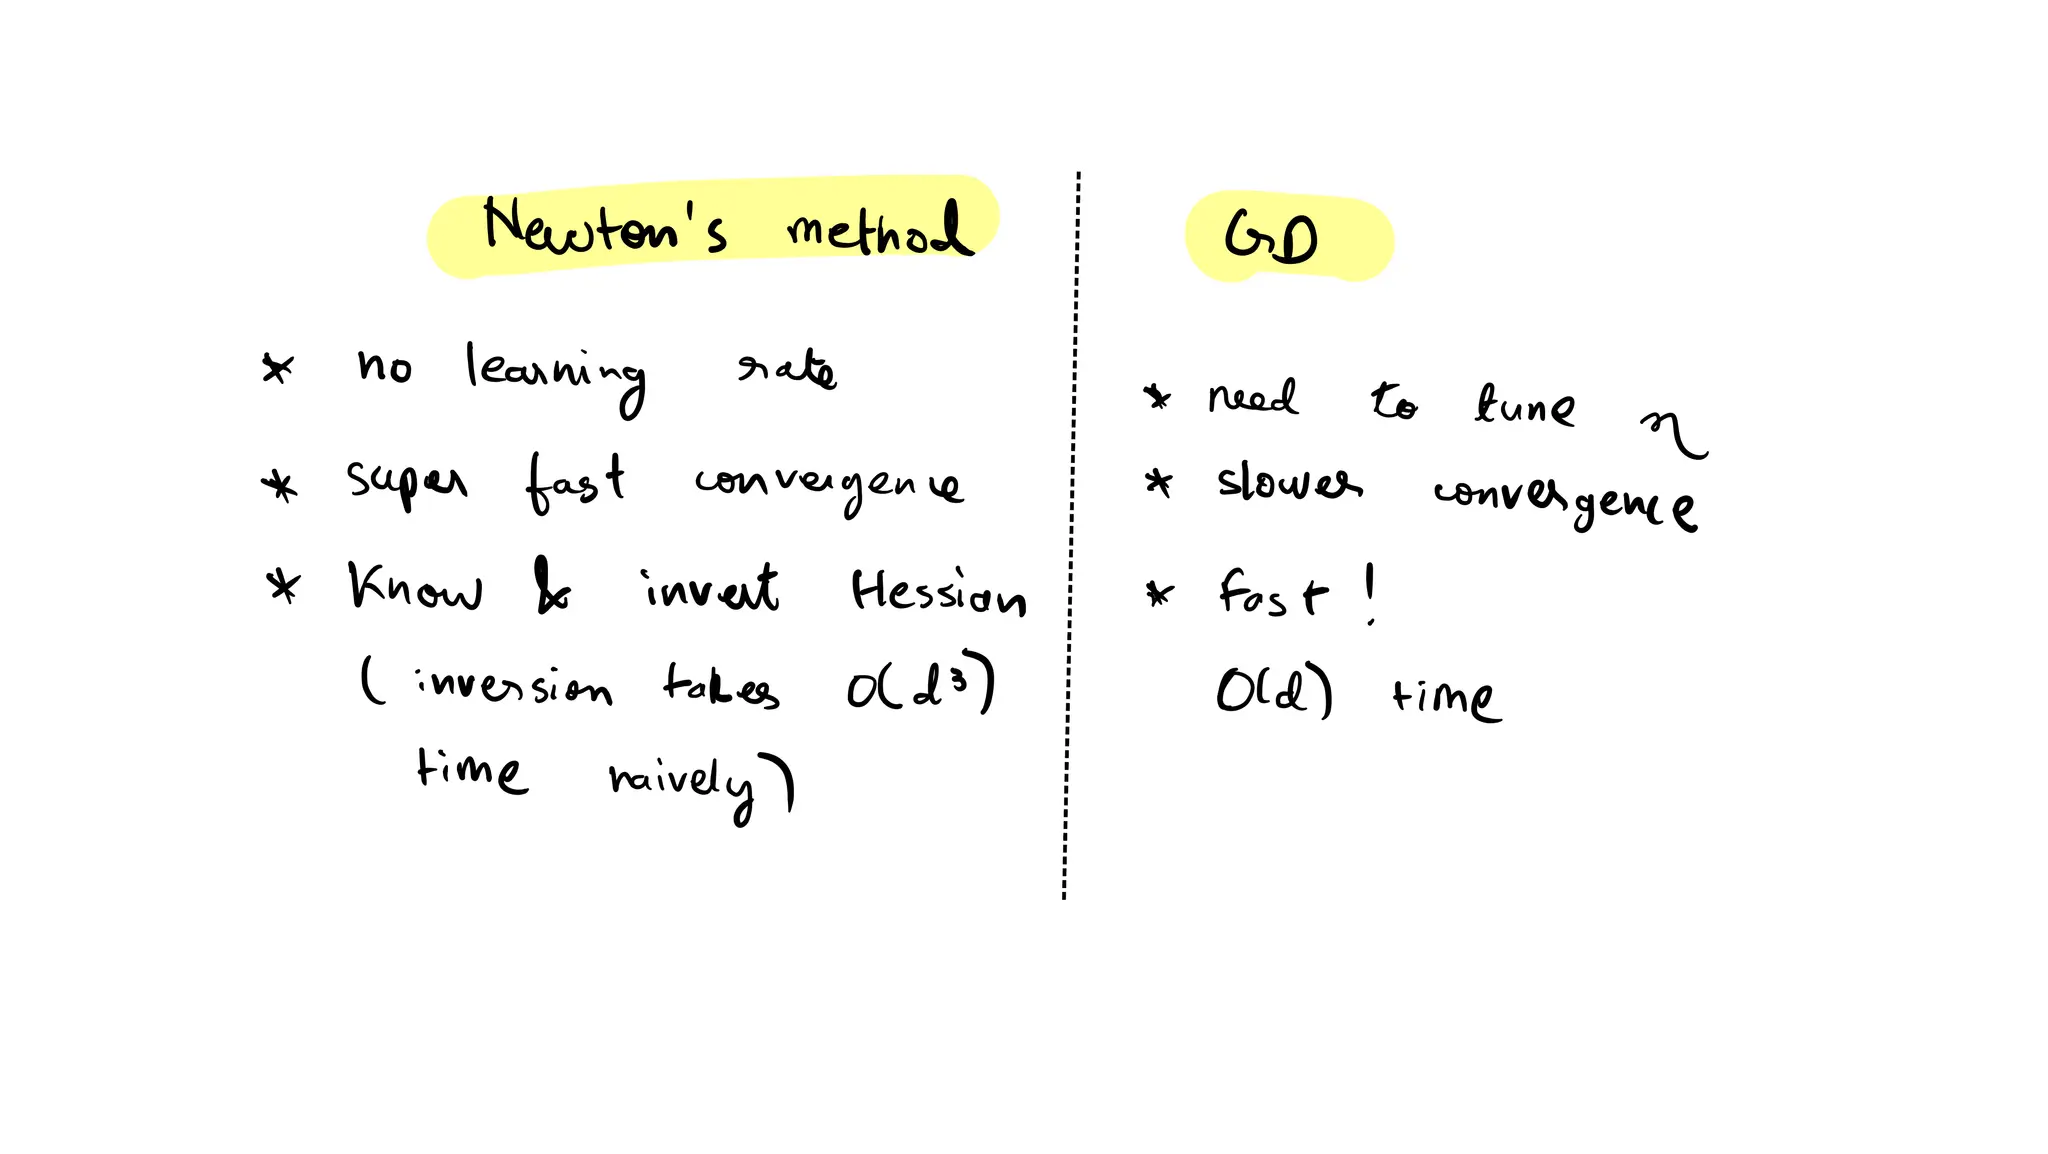 Newton's method
* no learning rate
* super fast convergence
* Know & invert Hessian
( inversion takes O(d³)
time naively)
GD
* need to tune η
* slower convergence
* fast !
O(d) time